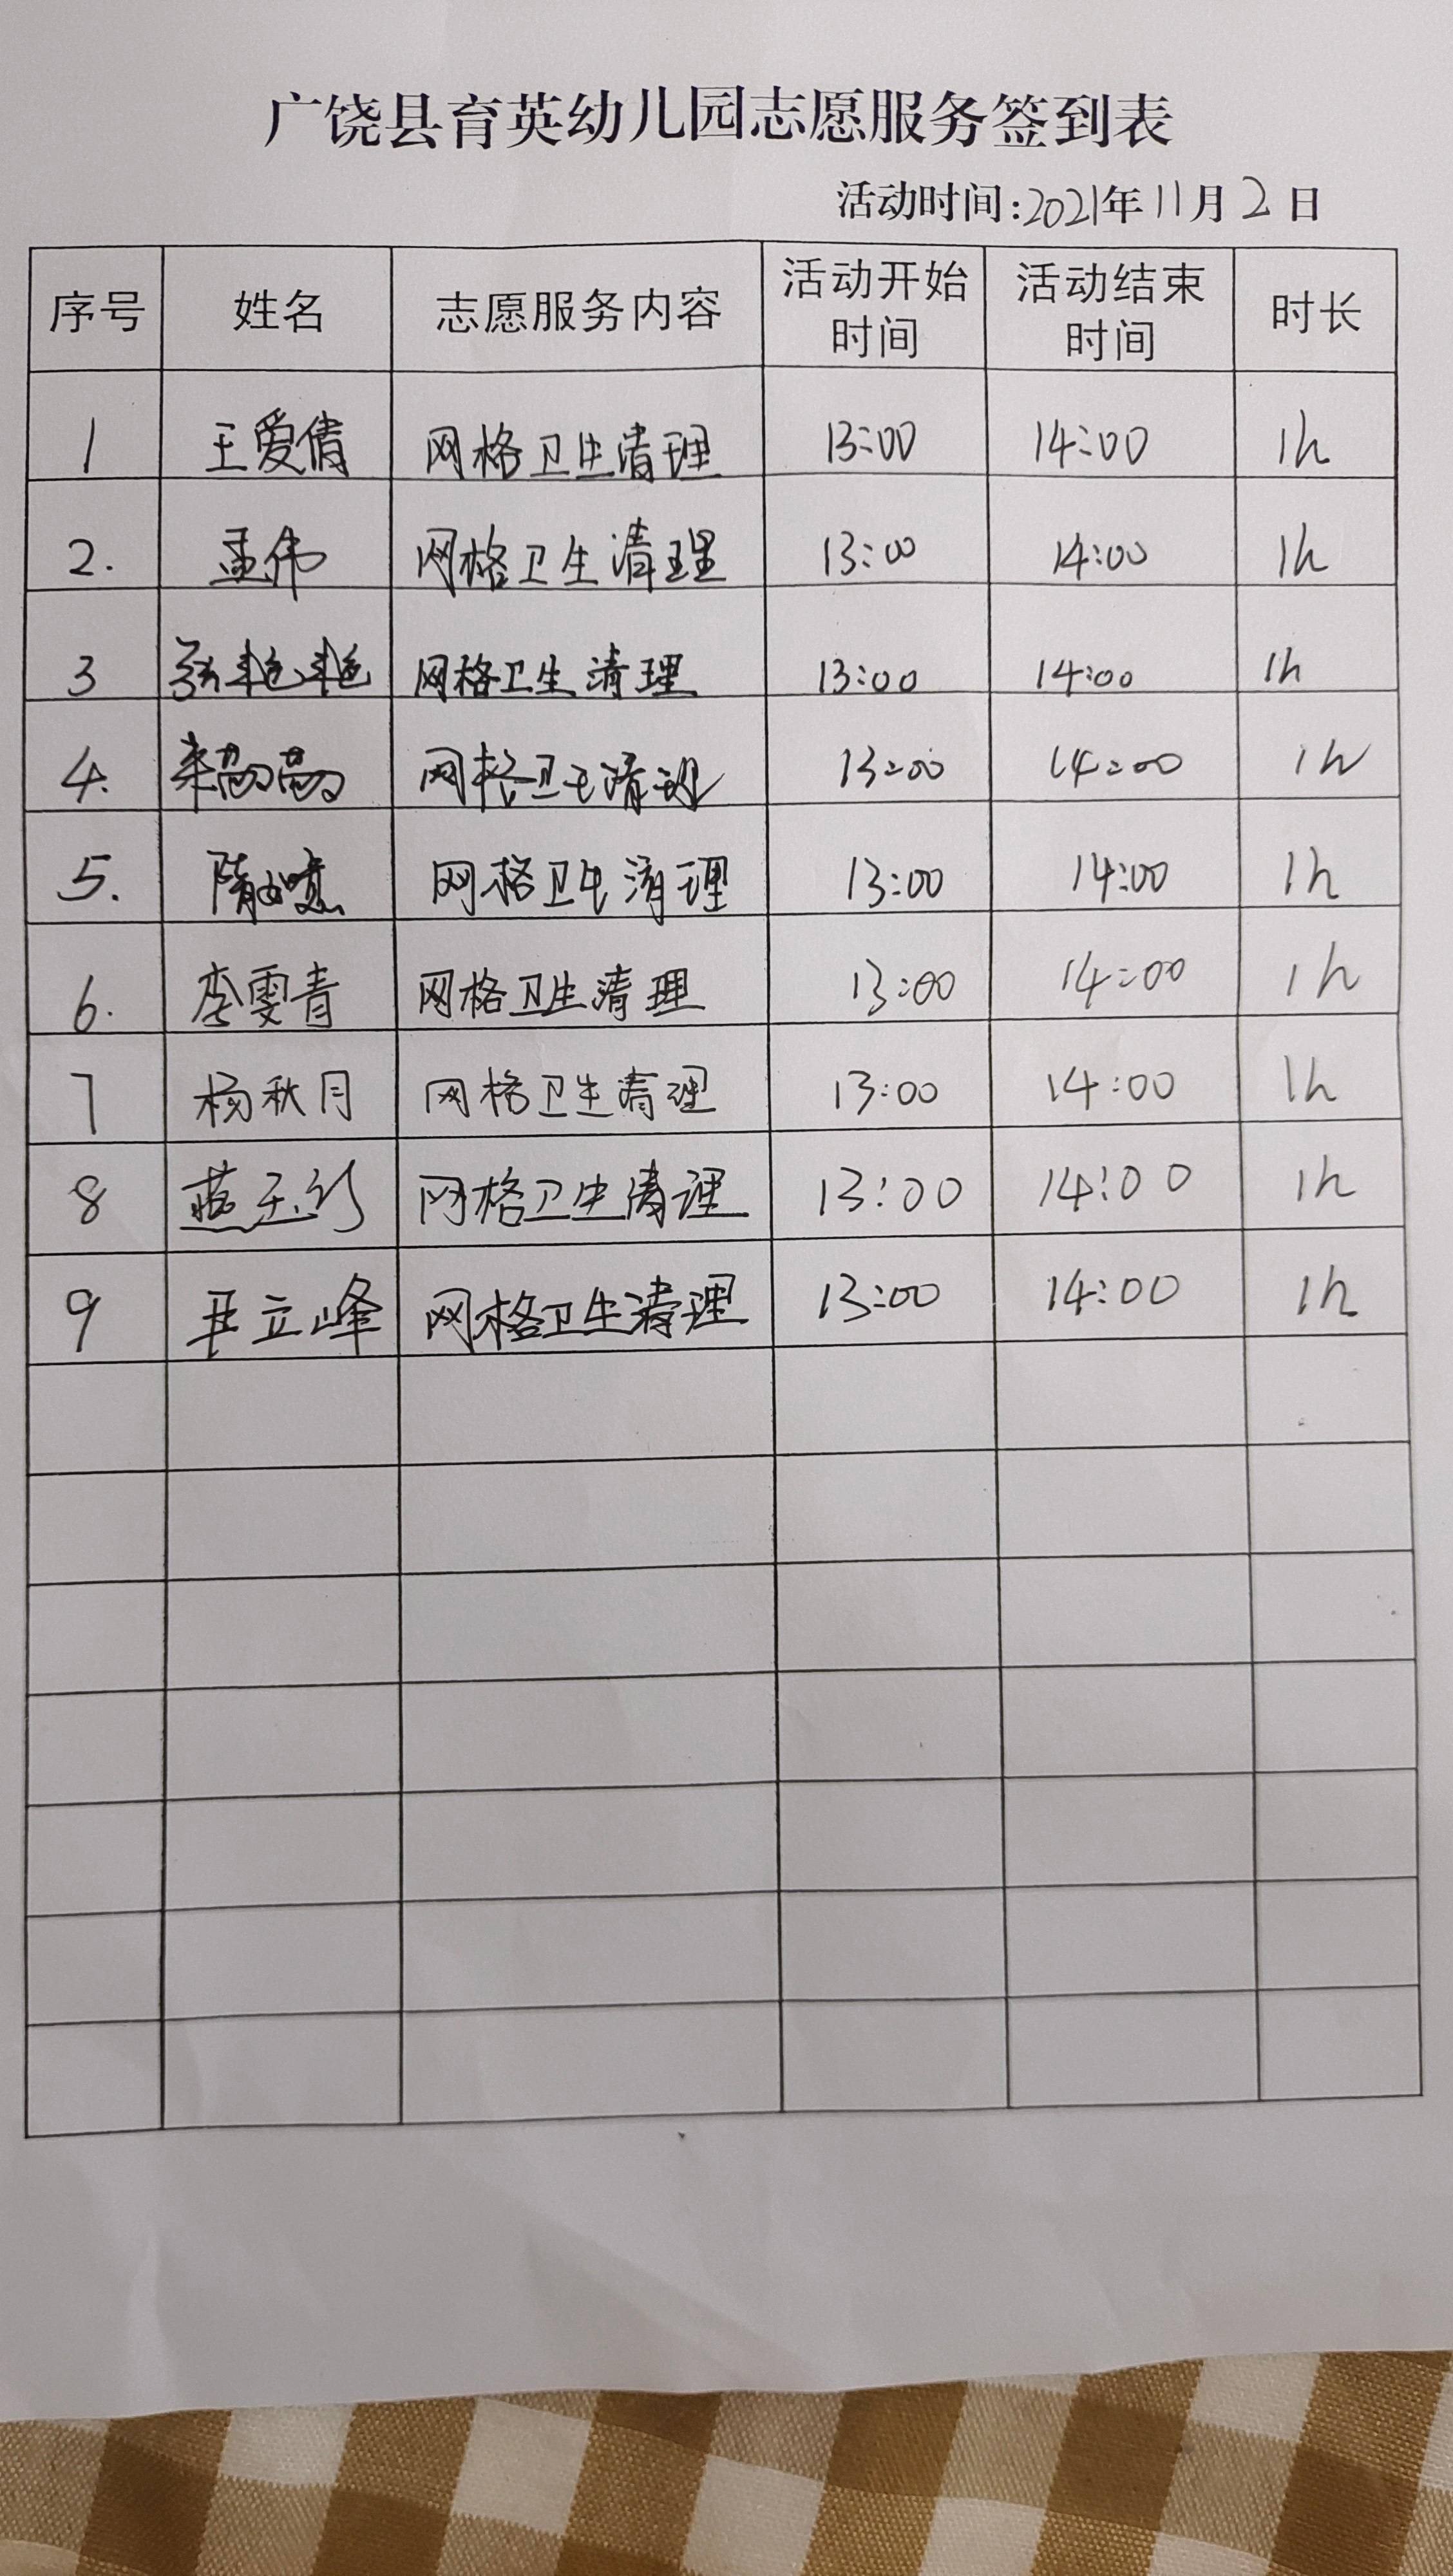 广饶县育英幼儿园志愿服务签到表
活动时间:2021年11月2日
序号 姓名 志愿服务内容 活动开始时间 活动结束时间 时长
1 王爱倩 网格卫生清理 13:00 14:00 1h
2. 孟伟 网格卫生清理 13:00 14:00 1h
3 张艳艳 网格卫生清理 13:00 14:00 1h
4. 网格卫生清理 13:00 14:00 1h
5. 隋 网格卫生清理 13:00 14:00 1h
6. 李雯青 网格卫生清理 13:00 14:00 1h
7 杨秋月 网格卫生清理 13:00 14:00 1h
8 燕玉 网格卫生清理 13:00 14:00 1h
9 王立峰 网格卫生清理 13:00 14:00 1h